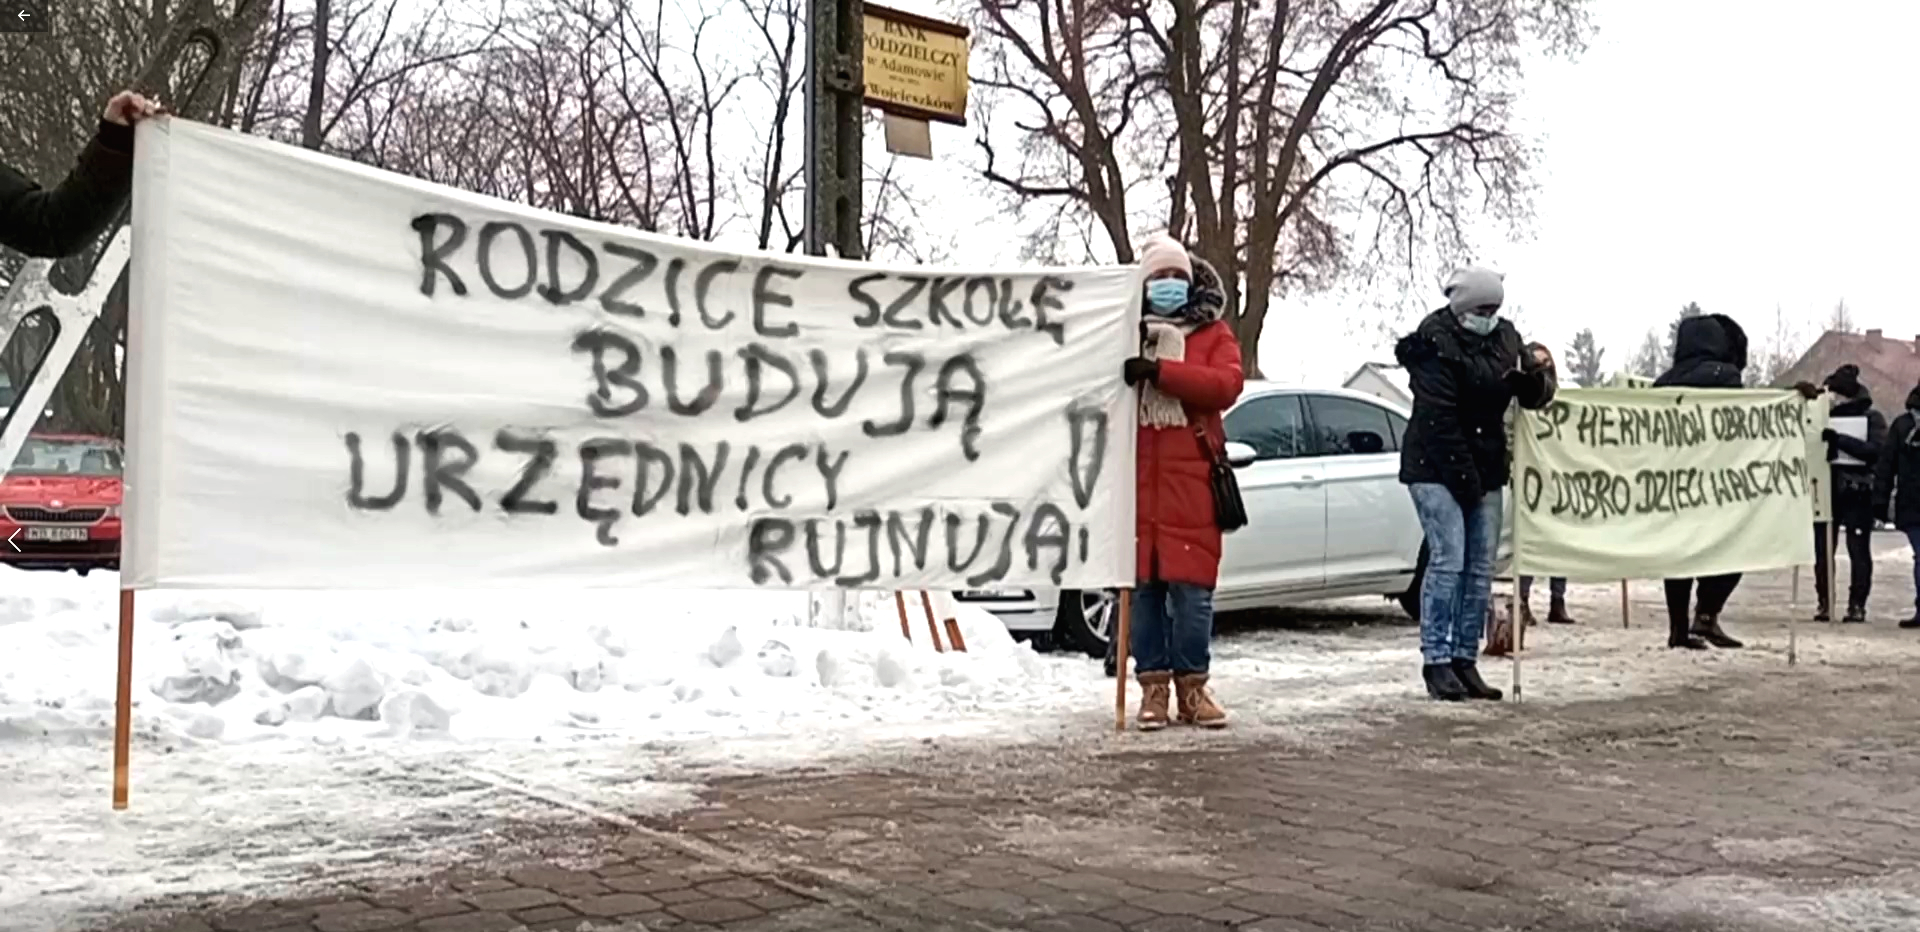 BANK
PÓŁDZIELCZY
w Adamowie
Wojcieszków
RODZICE SZKOŁĘ
BUDUJĄ
URZĘDNICY
RUJNUJĄ!
SP HERMANÓW OBRONIMY!
O DOBRO DZIECI WALCZYMY!